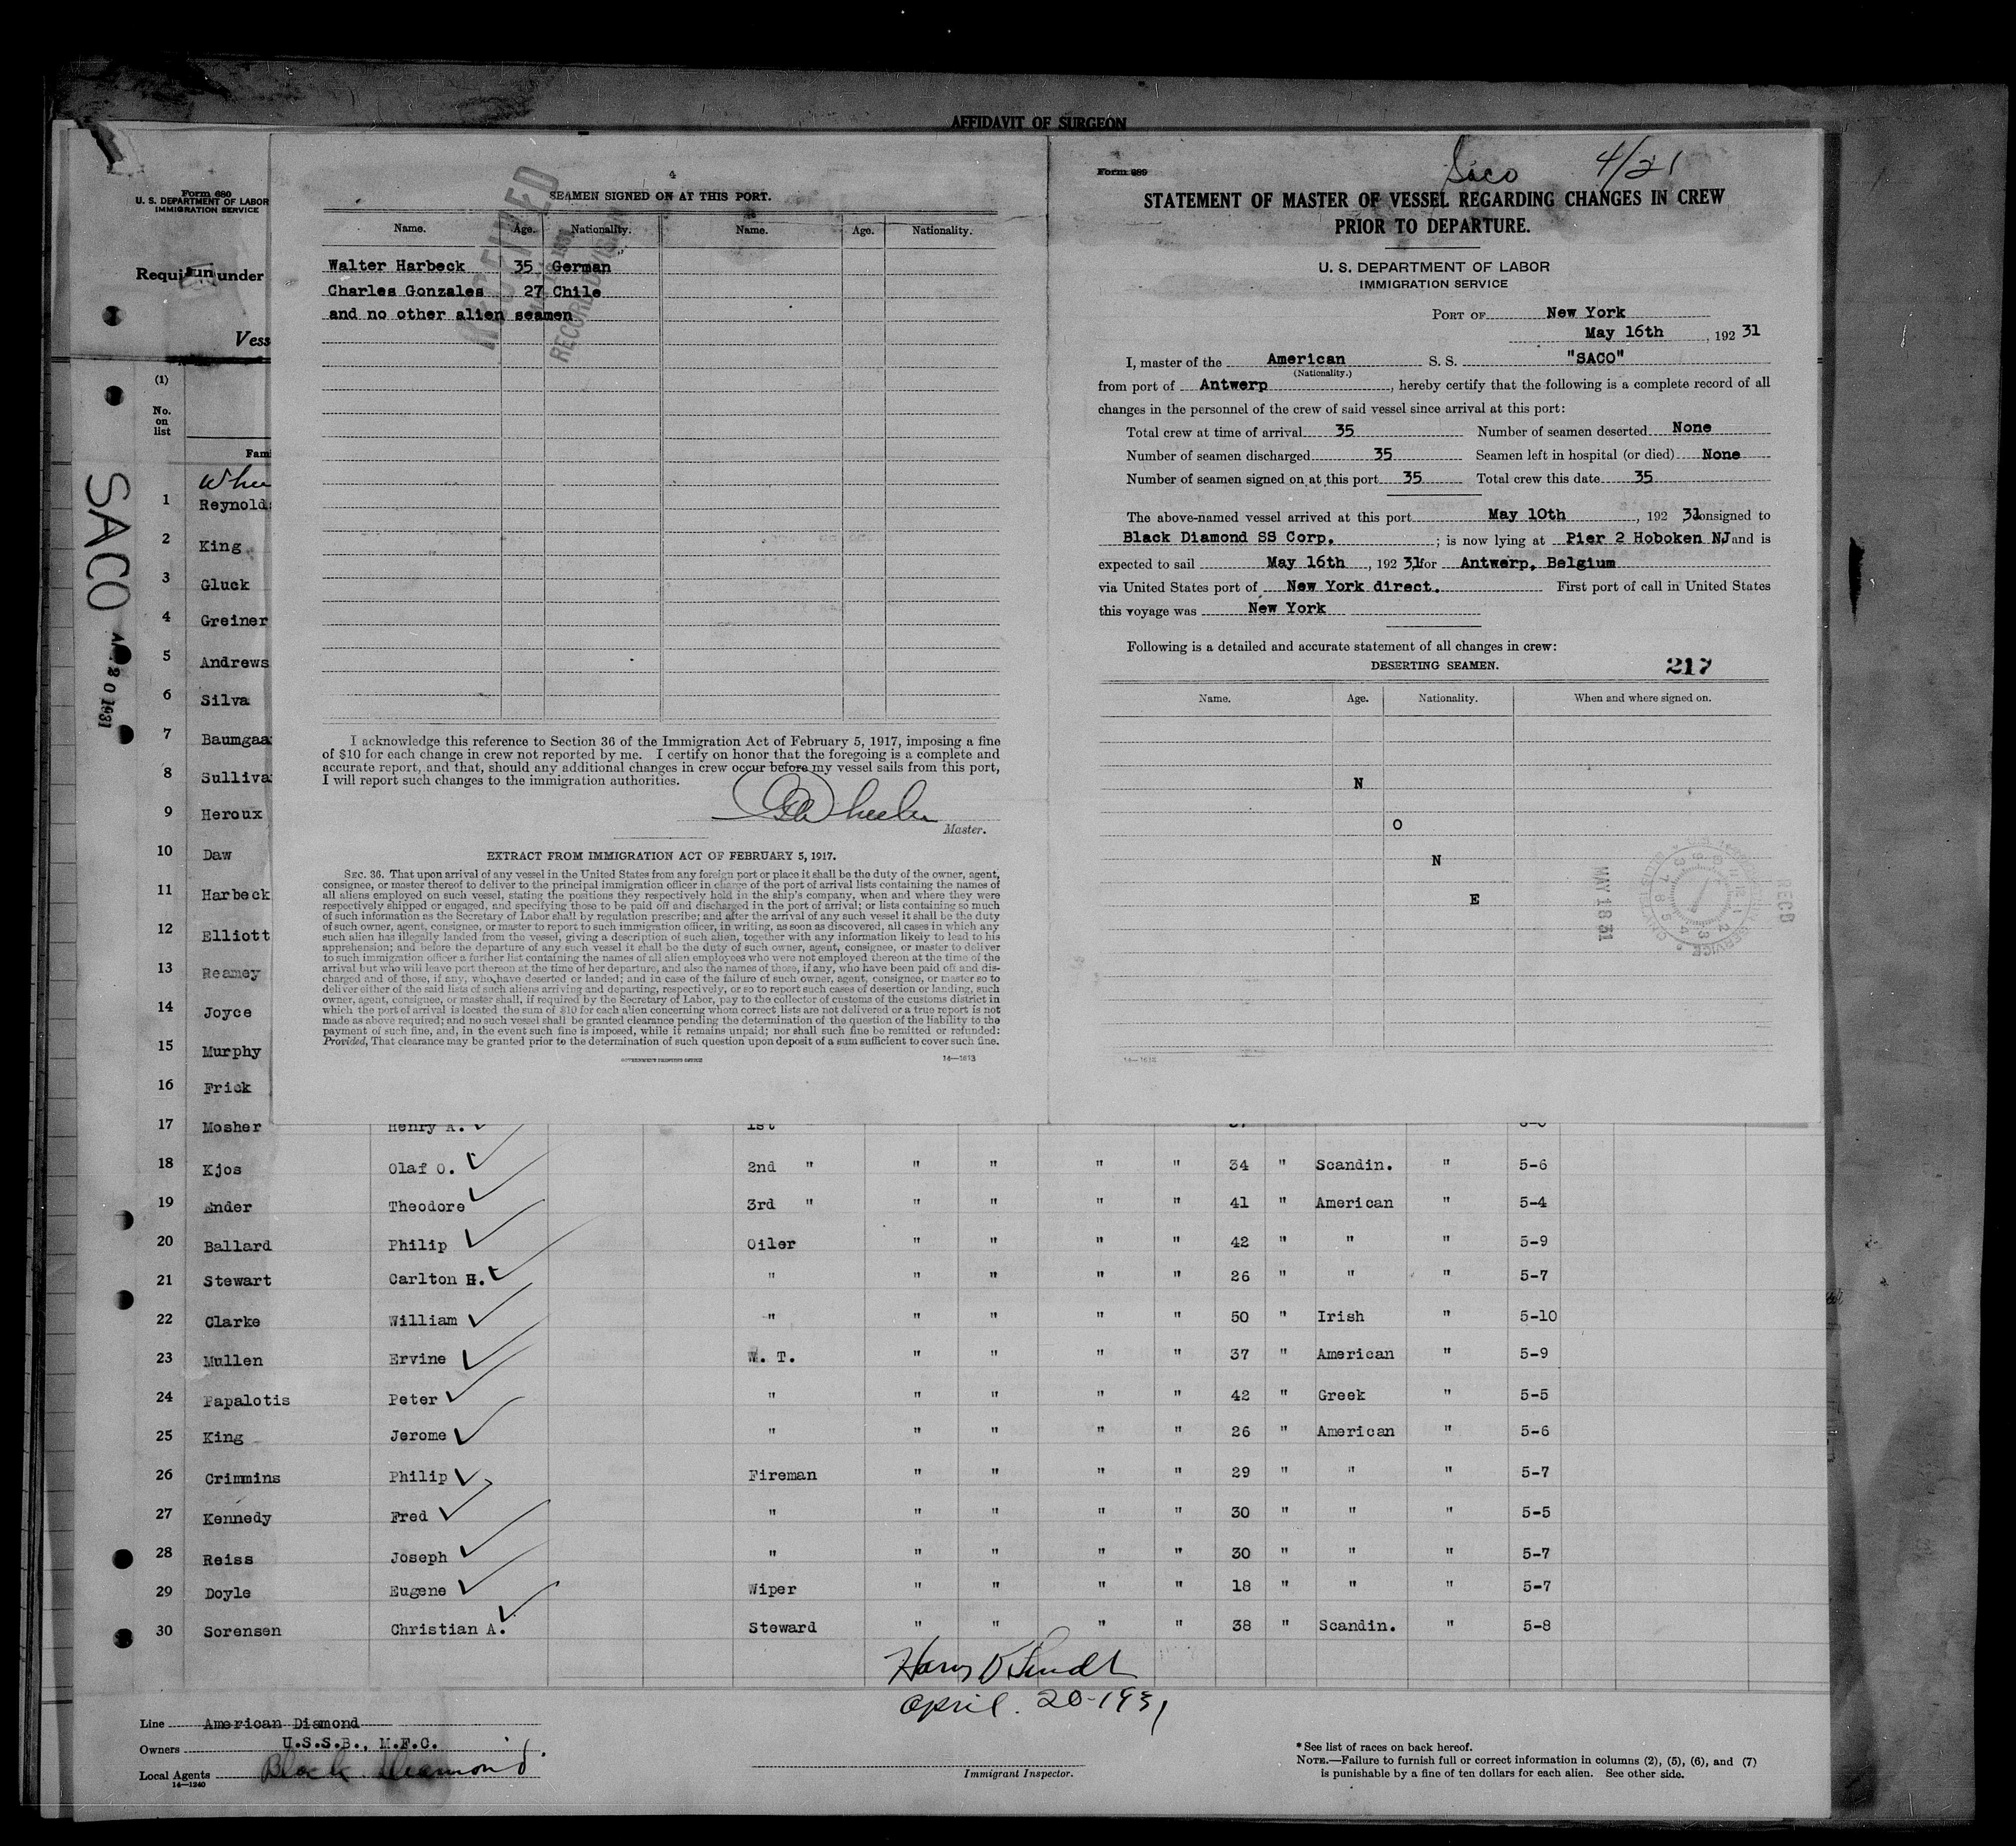 AFFIDAVIT OF SURGEON
Form 680
U. S. DEPARTMENT OF LABOR
IMMIGRATION SERVICE
Requi un under
Vess
(1)
No.
on
list
Fami
SACO
20 1931
Whee
1 Reynolds
2 King
3 Gluck
4 Greiner
5 Andrews
6 Silva
7 Baumgaa
8 Sulliva
9 Heroux
10 Daw
11 Harbeck
12 Elliott
13 Reamey
14 Joyce
15 Murphy
16 Frick
4
SEAMEN SIGNED ON AT THIS PORT.
Name. Age. Nationality. Name. Age. Nationality.
Walter Harbeck 35 German
Charles Gonzales 27 Chile
and no other alien seamen
RECORD DIVISION
I acknowledge this reference to Section 36 of the Immigration Act of February 5, 1917, imposing a fine
of $10 for each change in crew not reported by me. I certify on honor that the foregoing is a complete and
accurate report, and that, should any additional changes in crew occur before my vessel sails from this port,
I will report such changes to the immigration authorities.
Wheeler
Master.
EXTRACT FROM IMMIGRATION ACT OF FEBRUARY 5, 1917.
SEC. 36. That upon arrival of any vessel in the United States from any foreign port or place it shall be the duty of the owner, agent,
consignee, or master thereof to deliver to the principal immigration officer in charge of the port of arrival lists containing the names of
all aliens employed on such vessel, stating the positions they respectively hold in the ship's company, when and where they were
respectively shipped or engaged, and specifying those to be paid off and discharged in the port of arrival; or lists containing so much
of such information as the Secretary of Labor shall by regulation prescribe; and after the arrival of any such vessel it shall be the duty
of such owner, agent, consignee, or master to report to such immigration officer, in writing, as soon as discovered, all cases in which any
such alien has illegally landed from the vessel, giving a description of such alien, together with any information likely to lead to his
apprehension; and before the departure of any such vessel it shall be the duty of such owner, agent, consignee, or master to deliver
to such immigration officer a further list containing the names of all alien employees who were not employed thereon at the time of the
arrival but who will leave port thereon at the time of her departure, and also the names of those, if any, who have been paid off and dis-
charged and of those, if any, who have deserted or landed; and in case of the failure of such owner, agent, consignee, or master so to
deliver either of the said lists of such aliens arriving and departing, respectively, or so to report such cases of desertion or landing, such
owner, agent, consignee, or master shall, if required by the Secretary of Labor, pay to the collector of customs of the customs district in
which the port of arrival is located the sum of $10 for each alien concerning whom correct lists are not delivered or a true report is not
made as above required; and no such vessel shall be granted clearance pending the determination of the question of the liability to the
payment of such fine, and, in the event such fine is imposed, while it remains unpaid; nor shall such fine be remitted or refunded:
Provided, That clearance may be granted prior to the determination of such question upon deposit of a sum sufficient to cover such fine.
GOVERNMENT PRINTING OFFICE 14—1613
Saco 4/21
Form 689
STATEMENT OF MASTER OF VESSEL REGARDING CHANGES IN CREW
PRIOR TO DEPARTURE.
U. S. DEPARTMENT OF LABOR
IMMIGRATION SERVICE
PORT OF New York
May 16th , 192 31
I, master of the American S. S. "SACO"
(Nationality.)
from port of Antwerp , hereby certify that the following is a complete record of all
changes in the personnel of the crew of said vessel since arrival at this port:
Total crew at time of arrival 35 Number of seamen deserted None
Number of seamen discharged 35 Seamen left in hospital (or died) None
Number of seamen signed on at this port 35 Total crew this date 35
The above-named vessel arrived at this port May 10th , 192 31 consigned to
Black Diamond SS Corp. ; is now lying at Pier 2 Hoboken NJ and is
expected to sail May 16th , 192 31 for Antwerp, Belgium
via United States port of New York direct. First port of call in United States
this voyage was New York
Following is a detailed and accurate statement of all changes in crew:
DESERTING SEAMEN. 217
Name. Age. Nationality. When and where signed on.
N
O
N
E
RECD
MAY 18 31
14—1613
17 Mosher Henry A. 1st
18 Kjos Olaf O. 2nd " " " " " 34 " Scandin. " 5-6
19 Ender Theodore 3rd " " " " " 41 " American " 5-4
20 Ballard Philip Oiler " " " " 42 " " " 5-9
21 Stewart Carlton H. " " " " " 26 " " " 5-7
22 Clarke William " " " " " 50 " Irish " 5-10
23 Mullen Ervine W. T. " " " " 37 " American " 5-9
24 Papalotis Peter " " " " " 42 " Greek " 5-5
25 King Jerome " " " " " 26 " American " 5-6
26 Crimmins Philip Fireman " " " " 29 " " " 5-7
27 Kennedy Fred " " " " " 30 " " " 5-5
28 Reiss Joseph " " " " " 30 " " " 5-7
29 Doyle Eugene Wiper " " " " 18 " " " 5-7
30 Sorensen Christian A. Steward " " " " 38 " Scandin. " 5-8
April. 20-1931
Line American Diamond
Owners U.S.S.B., M.F.C.
Local Agents Black Diamond
14—1240
Immigrant Inspector.
* See list of races on back hereof.
NOTE.—Failure to furnish full or correct information in columns (2), (5), (6), and (7)
is punishable by a fine of ten dollars for each alien. See other side.